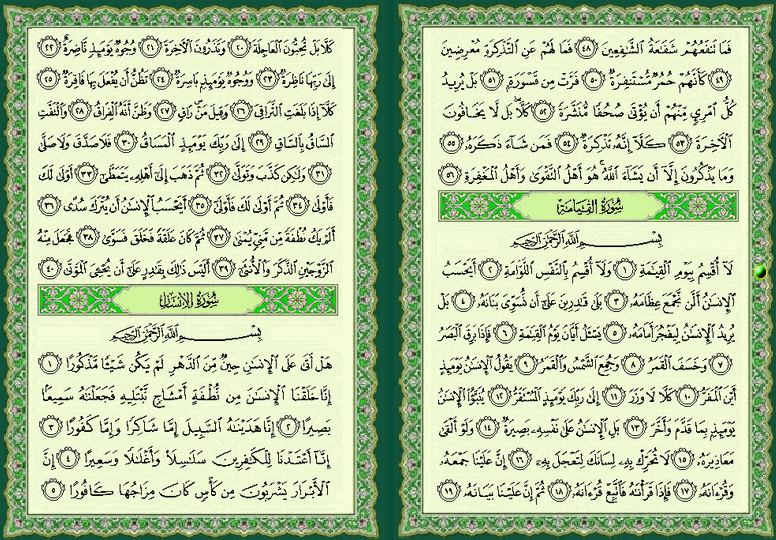 فَمَا تَنفَعُهُمْ شَفَـٰعَةُ ٱلشَّـٰفِعِينَ ٤٨ فَمَا لَهُمْ عَنِ ٱلتَّذْكِرَةِ مُعْرِضِينَ
٤٩ كَأَنَّهُمْ حُمُرٌ مُّسْتَنفِرَةٌ ٥٠ فَرَّتْ مِن قَسْوَرَةٍ ٥١ بَلْ يُرِيدُ
كُلُّ ٱمْرِئٍ مِّنْهُمْ أَن يُؤْتَىٰ صُحُفًا مُّنَشَّرَةً ٥٢ كَلَّا ۖ بَل لَّا يَخَافُونَ
ٱلْـَٔاخِرَةَ ٥٣ كَلَّآ إِنَّهُۥ تَذْكِرَةٌ ٥٤ فَمَن شَآءَ ذَكَرَهُۥ ٥٥
وَمَا يَذْكُرُونَ إِلَّآ أَن يَشَآءَ ٱللَّهُ ۚ هُوَ أَهْلُ ٱلتَّقْوَىٰ وَأَهْلُ ٱلْمَغْفِرَةِ ٥٦
سُورَةُ القِيَامَةِ
بِسْمِ ٱللَّهِ ٱلرَّحْمَـٰنِ ٱلرَّحِيمِ
لَآ أُقْسِمُ بِيَوْمِ ٱلْقِيَـٰمَةِ ١ وَلَآ أُقْسِمُ بِٱلنَّفْسِ ٱللَّوَّامَةِ ٢ أَيَحْسَبُ
ٱلْإِنسَـٰنُ أَلَّن نَّجْمَعَ عِظَامَهُۥ ٣ بَلَىٰ قَـٰدِرِينَ عَلَىٰٓ أَن نُّسَوِّىَ بَنَانَهُۥ ٤ بَلْ
يُرِيدُ ٱلْإِنسَـٰنُ لِيَفْجُرَ أَمَامَهُۥ ٥ يَسْـَٔلُ أَيَّانَ يَوْمُ ٱلْقِيَـٰمَةِ ٦ فَإِذَا بَرِقَ ٱلْبَصَرُ
٧ وَخَسَفَ ٱلْقَمَرُ ٨ وَجُمِعَ ٱلشَّمْسُ وَٱلْقَمَرُ ٩ يَقُولُ ٱلْإِنسَـٰنُ يَوْمَئِذٍ
أَيْنَ ٱلْمَفَرُّ ١٠ كَلَّا لَا وَزَرَ ١١ إِلَىٰ رَبِّكَ يَوْمَئِذٍ ٱلْمُسْتَقَرُّ ١٢ يُنَبَّؤُا۟ ٱلْإِنسَـٰنُ
يَوْمَئِذٍۭ بِمَا قَدَّمَ وَأَخَّرَ ١٣ بَلِ ٱلْإِنسَـٰنُ عَلَىٰ نَفْسِهِۦ بَصِيرَةٌ ١٤ وَلَوْ أَلْقَىٰ
مَعَاذِيرَهُۥ ١٥ لَا تُحَرِّكْ بِهِۦ لِسَانَكَ لِتَعْجَلَ بِهِۦٓ ١٦ إِنَّ عَلَيْنَا جَمْعَهُۥ
وَقُرْءَانَهُۥ ١٧ فَإِذَا قَرَأْنَـٰهُ فَٱتَّبِعْ قُرْءَانَهُۥ ١٨ ثُمَّ إِنَّ عَلَيْنَا بَيَانَهُۥ ١٩
كَلَّا بَلْ تُحِبُّونَ ٱلْعَاجِلَةَ ٢٠ وَتَذَرُونَ ٱلْـَٔاخِرَةَ ٢١ وُجُوهٌ يَوْمَئِذٍ نَّاضِرَةٌ ٢٢
إِلَىٰ رَبِّهَا نَاظِرَةٌ ٢٣ وَوُجُوهٌ يَوْمَئِذٍۭ بَاسِرَةٌ ٢٤ تَظُنُّ أَن يُفْعَلَ بِهَا فَاقِرَةٌ ٢٥
كَلَّآ إِذَا بَلَغَتِ ٱلتَّرَاقِىَ ٢٦ وَقِيلَ مَنْ ۜ رَاقٍ ٢٧ وَظَنَّ أَنَّهُ ٱلْفِرَاقُ ٢٨ وَٱلْتَفَّتِ
ٱلسَّاقُ بِٱلسَّاقِ ٢٩ إِلَىٰ رَبِّكَ يَوْمَئِذٍ ٱلْمَسَاقُ ٣٠ فَلَا صَدَّقَ وَلَا صَلَّىٰ
٣١ وَلَـٰكِن كَذَّبَ وَتَوَلَّىٰ ٣٢ ثُمَّ ذَهَبَ إِلَىٰٓ أَهْلِهِۦ يَتَمَطَّىٰٓ ٣٣ أَوْلَىٰ لَكَ
فَأَوْلَىٰ ٣٤ ثُمَّ أَوْلَىٰ لَكَ فَأَوْلَىٰٓ ٣٥ أَيَحْسَبُ ٱلْإِنسَـٰنُ أَن يُتْرَكَ سُدًى ٣٦
أَلَمْ يَكُ نُطْفَةً مِّن مَّنِىٍّ يُمْنَىٰ ٣٧ ثُمَّ كَانَ عَلَقَةً فَخَلَقَ فَسَوَّىٰ ٣٨ فَجَعَلَ مِنْهُ
ٱلزَّوْجَيْنِ ٱلذَّكَرَ وَٱلْأُنثَىٰٓ ٣٩ أَلَيْسَ ذَٰلِكَ بِقَـٰدِرٍ عَلَىٰٓ أَن يُحْـِۧىَ ٱلْمَوْتَىٰ ٤٠
سُورَةُ الإِنسَانِ
بِسْمِ ٱللَّهِ ٱلرَّحْمَـٰنِ ٱلرَّحِيمِ
هَلْ أَتَىٰ عَلَى ٱلْإِنسَـٰنِ حِينٌ مِّنَ ٱلدَّهْرِ لَمْ يَكُن شَيْـًٔا مَّذْكُورًا ١
إِنَّا خَلَقْنَا ٱلْإِنسَـٰنَ مِن نُّطْفَةٍ أَمْشَاجٍ نَّبْتَلِيهِ فَجَعَلْنَـٰهُ سَمِيعًۢا
بَصِيرًا ٢ إِنَّا هَدَيْنَـٰهُ ٱلسَّبِيلَ إِمَّا شَاكِرًا وَإِمَّا كَفُورًا ٣
إِنَّآ أَعْتَدْنَا لِلْكَـٰفِرِينَ سَلَـٰسِلَا۟ وَأَغْلَـٰلًا وَسَعِيرًا ٤ إِنَّ
ٱلْأَبْرَارَ يَشْرَبُونَ مِن كَأْسٍ كَانَ مِزَاجُهَا كَافُورًا ٥